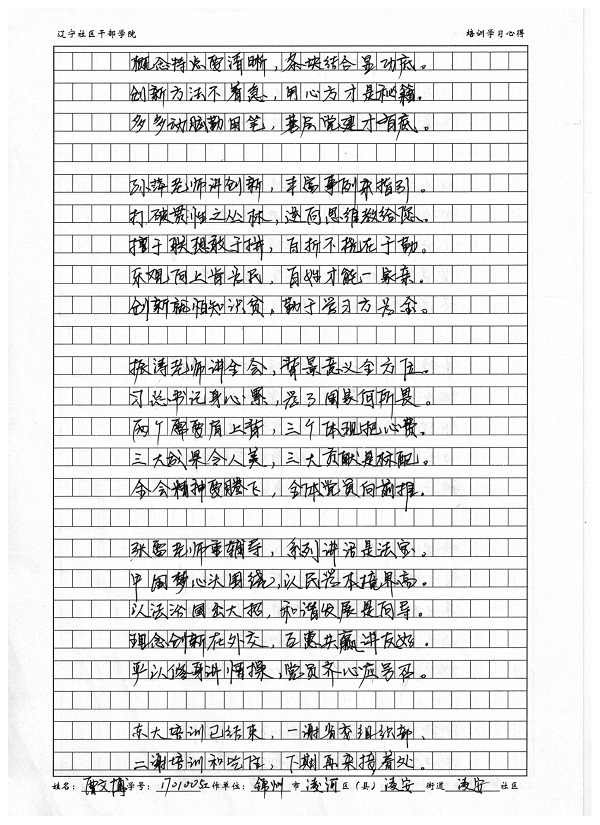 辽宁社区干部学院 培训学习心得
概念特点要清晰，条块结合显功底。
创新方法不看惠，用心方才是秘籍。
多多动脑勤用笔，基层党建才有底。
孙萍老师讲创新，丰富事例来指引。
打破惯性之丛林，逆向思维教给您。
擅于联想敢于拼，百折不挠在于勤。
乐观向上肯为民，百姓才能一家亲。
创新就怕知识贫，勤于学习方为金。
振涛老师讲全会，背景意义全方位。
习总书记身心累，为了国家何所畏。
两个需要肩上背，三个体现把心费。
三大成果令人美，三大贡献是标配。
全会精神要腾飞，全体党员向前推。
张雷老师重辅导，系列讲话是法宝。
中国梦心头围绕，以民为本境界高。
以法治国出大招，和谐发展是向导。
理念创新在外交，互惠共赢讲友好。
严以修身讲情操，党员齐心应号召。
东大培训已结束，一谢省委组织部、
二谢培训和吃住，下期再来接着处。
姓名：唐文博 学号：1701005 工作单位：锦州 市 凌河 区（县） 凌安 街道 凌安 社区